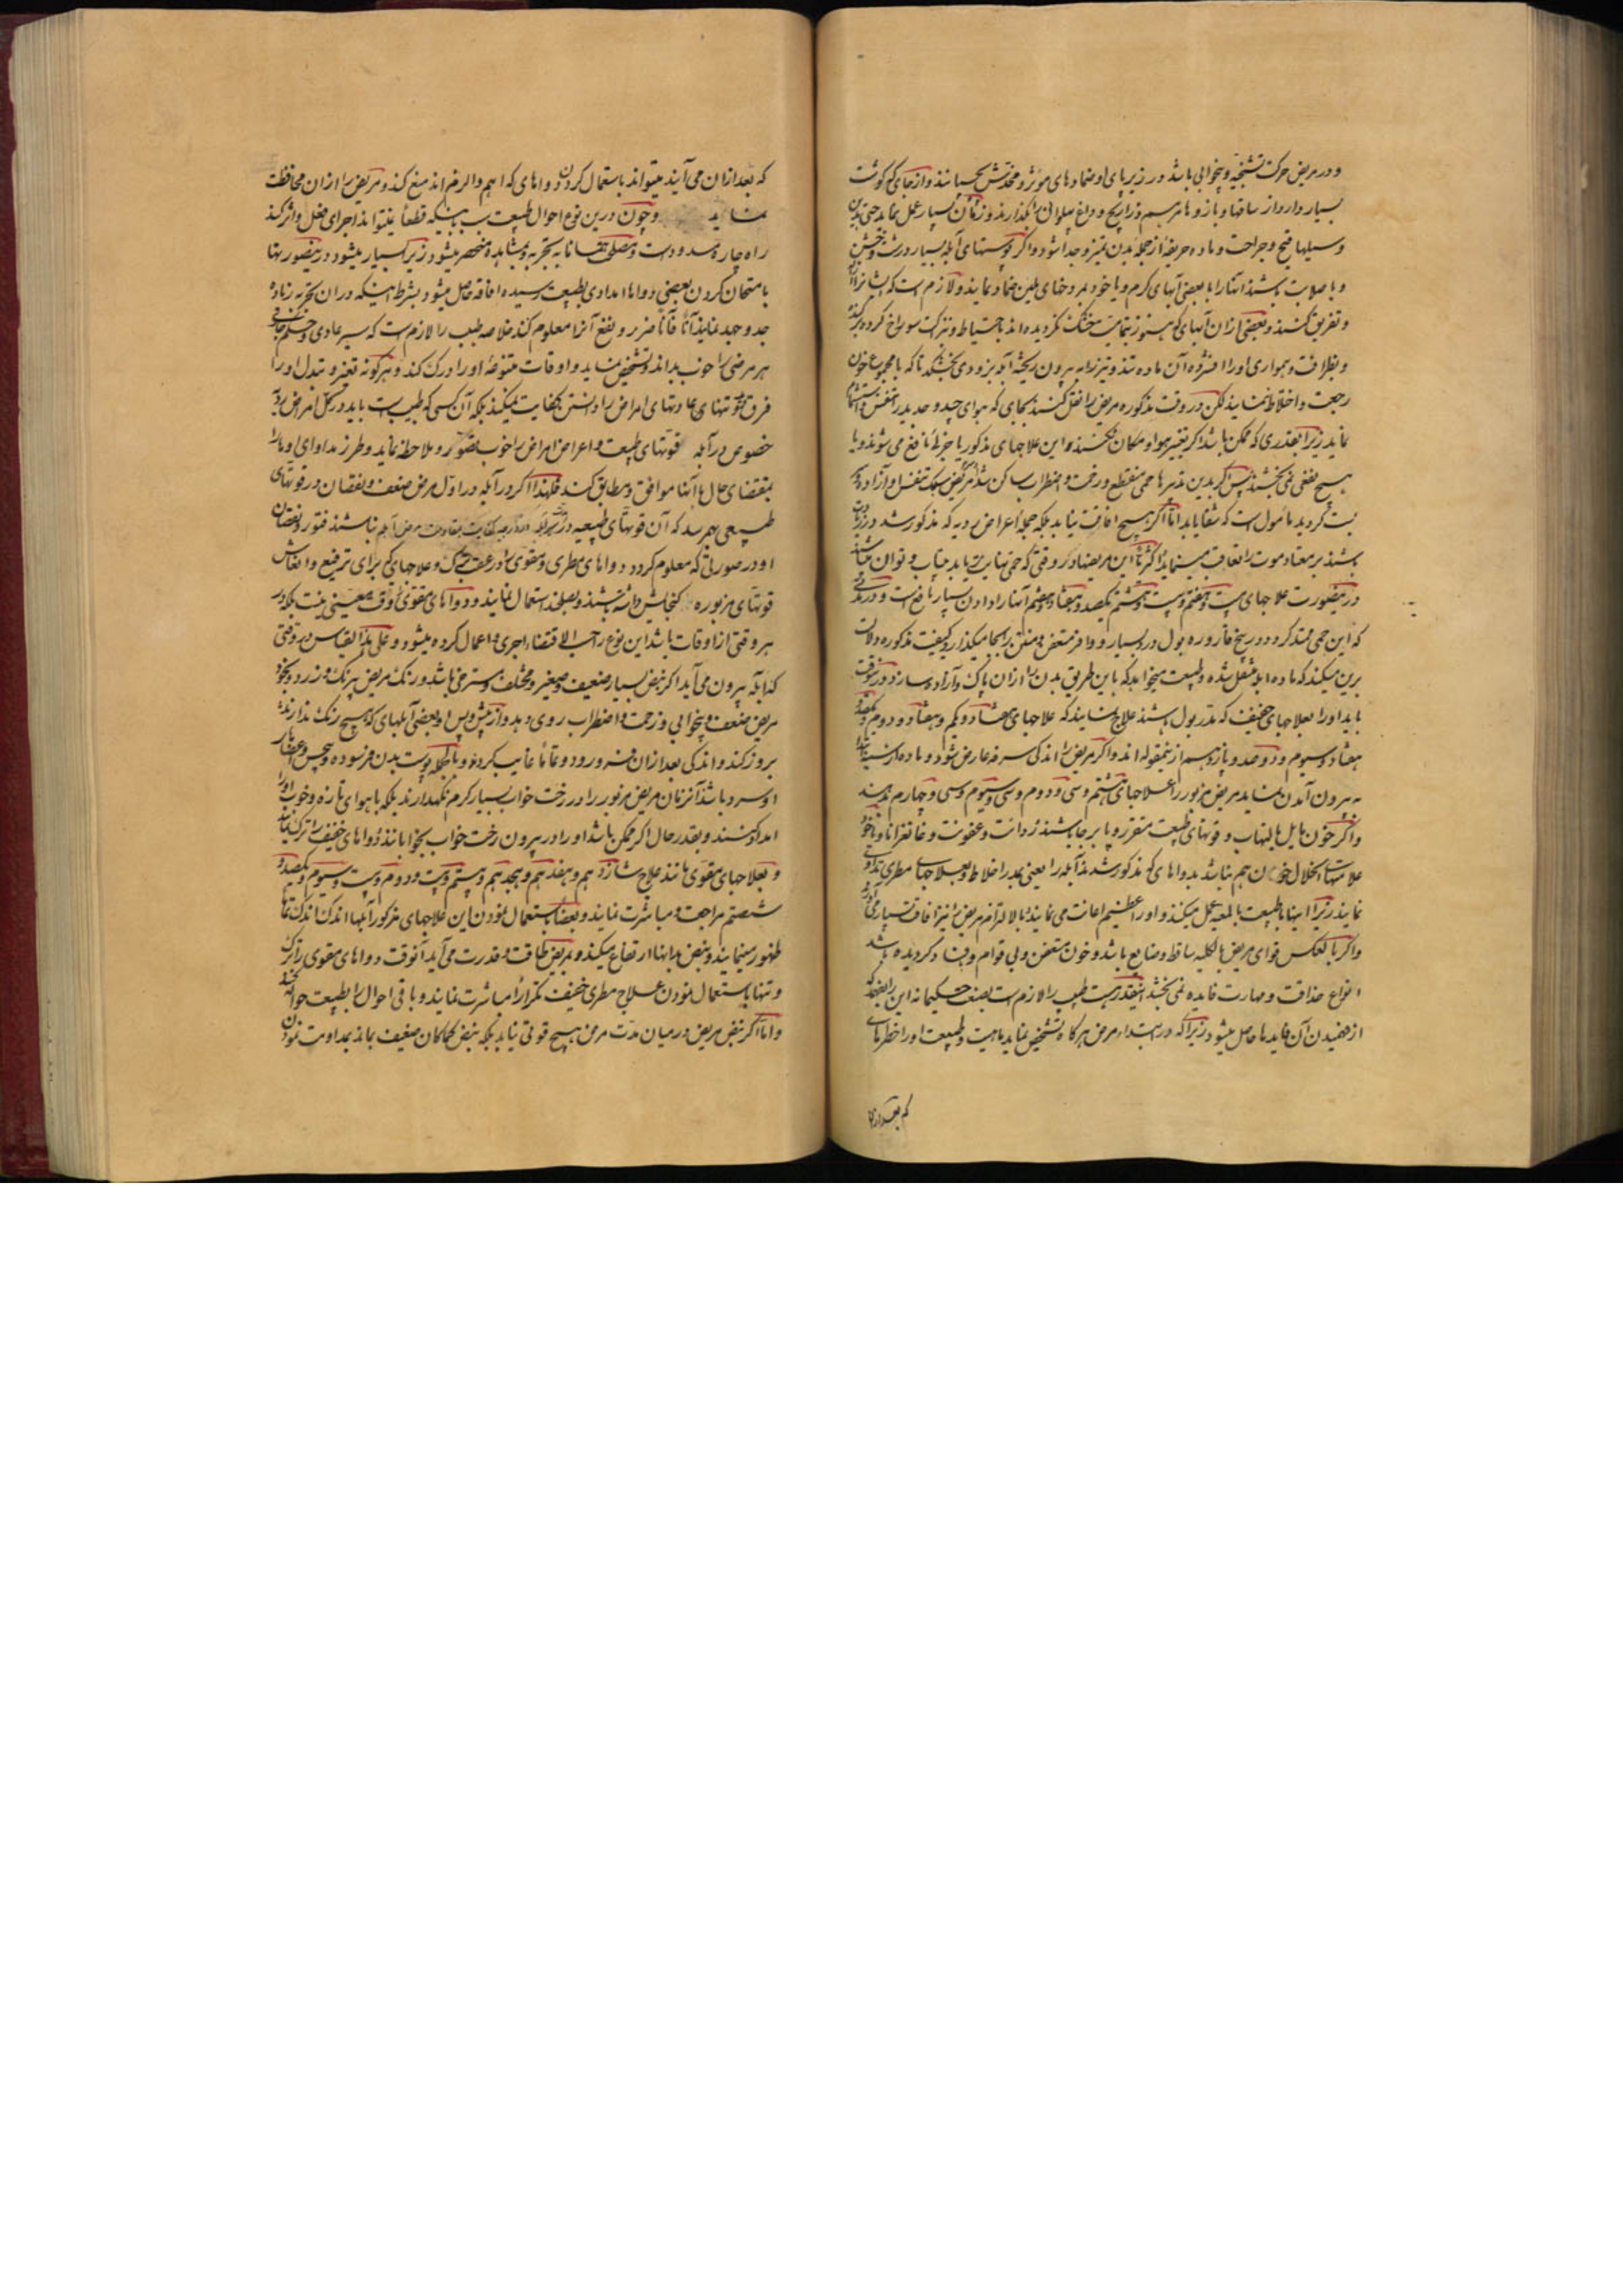 و در مریض حرکت تشنجیه و بیخوابی باشد در زیر پای او ضمادهای موثر و محدتش بچسبانند و از جای که گوشت
بسیار دارد از ساقها و بازوها مرهم ذراریح و داغ پهلوانی بگذارند و زمان بسیار عمل نماید حتی بدین
وسیلها قیح و جراحت و ماده حریفه از جمله بدن تمیز و جدا شود و اگر پوستهای آبله بسیار درشت و خشن
و با صلابت باشند آنها را با بعضی آبهای گرم و یا خود بروغنهای ملین ضماد نمایند و لازم است که ایشانرا
و تفریق کنند و بعضی ازان آبلهای که هنوز بتمامیت خشک نگردیده اند باحتیاط و نزاکت سوراخ کرده
و بنظرافت و همواری او را افشرده آن ماده تند و تیز را به بیرون ریخته آبله بزودی بخشکد تا که با مجموع خون
رجعت و اختلاط ننماید لکن در وقت مذکوره مریض را نقل کنند بجای که هوای جید و جدید را تنفس و استشمام
نماید زیرا بقدری که ممکن باشد اگر تغییر هوا و مکان نکنند این علاجهای مذکور یا جزئی نافع می شوند و یا
هیچ نفعی نمی بخشند پس اگر بدین تدبیرها حمی منقطع و زحمت و اضطراب ساکن شد و مریض سبک تنفس و آزاده
گردید مأمول است که شفا یابد اما اگر هیچ افاقت نیابد بلکه جمله اعراض ردیه که مذکور شد در
باشند بر معتاد موت را تعاقب مینماید اکثریا این مریضها در وقتی که حمی نهایت می یابد بیتاب و توان میباشند
درینصورت علاجهای بیست و هفتم و بیست و هشتم یکصد و هفتاد و هفتم آنها را دادن بسیار نافع است و در مدتی
که این حمی ممتد گردد در بیخ قاروره بول درد بسیار و وافر متعفن و منتن بر جا میگذارد و کیفیت مذکوره دلالت
برین میکند که ماده آبله منتقل شده و طبیعت میخواهد که باین طریق بدن را ازان پاک و آزاد سازد درینوقت
باید او را بعلاجهای خفیف که مدر بول باشند علاج نمایند که علاجهای هشتاد و یکم و هشتاد و دوم و یکصد و
هفتاد و سیوم و دوصد و پانزدهم ازینمقوله اند و اگر مریض را اندکی سرفه عارض شود و ماده از سینه
به بیرون آمدن نماید مریض مزبور را علاجهای هشتم و سی و دوم و سی و سیوم و سی و چهارم بدهند
و اگر خون مایل بالتهاب و قوتهای طبیعت متقرر و پا برجا باشند ردائت و عفونت و غانغرانا و یا خود
علامتهای انحلال خون هم نباشد بدواهای که مذکور شد ماده آبله را یعنی جمله اخلاط و بعلاجهای مطری تداوی
نمایند زیرا اینها با طبیعت بالمعیه عمل میکنند و او را عظیم اعانت می نمایند و بالالتزام مریض را نیز افاقت بسیار می آورند
و اگر بالعکس قوای مریض بالکلیه ساقط و ضایع باشد و خون متعفن و بی قوام و فساد گردیده باشد
انواع حذاقت و مهارت فایده نمی بخشد اینقدر هست طبیب را لازم است بصنعت حکیمانه این را ضبط کند که
از فهمیدن آن فایدها حاصل میشود زیرا که در ابتداء مرض هرگاه تشخیص نماید ماهیت و طبیعت او را خطرهای
که بعد ازان
که بعد ازان می آیند میتواند باستعمال کردن دواهای که اهم و الزم اند منع کند و مریض را ازان محافظت
نماید و چون درین نوع احوال طبیعت بسببی اینکه قطعاً نمیتواند اجرای فعل و اثر کند
راه چاره مسدود است و مصلحت همانا به تجربه و مشاهده منحصر میشود زیرا که بسیار میشود درینصورتها
بامتحان کردن بعضی دواها امدادی بطبیعت رسیده افاقه حاصل میشود بشرط اینکه دران تجربه زیاده
جد و جهد نمایند آناً فآناً ضرر و نفع آنرا معلوم کند خلاصه طبیب را لازم است که سیر عادی و
هر مرضی را خوب بداند و تشخیص نماید و اوقات متنوعه او را درک کند و هر گونه تغیر و تبدل او را
فرق تنهای عادتهای امراض را دانستن کفایت نمیکند بلکه آن کسی که طبیب است باید در کل امراض
خصوص در آبله قوتهای طبیعت و اعراض امراض را خوب تصور و ملاحظه نماید و طرز مداوای او را
بمقتضای حال با آنها موافق و مطابق کند فلهذا اگر در آبله در اول مرض ضعف و نقصان در قوتهای
طبیعی بهم رسد که آن قوتهای طبیعیه در مرتبه کفایت بمقاومت مرض آبله نباشند فتور و نقصان
او در صورتی که معلوم گردد دواهای مطری و مقوی را در عقب یکدیگر و علاجهای که برای ترفیع و انعاش
قوتهای مزبوره گنجایش داشته باشند و بصلحند استعمال نمایند و دواهای مقوی را وقت معینی نیست بلکه در
هر وقتی از اوقات باشد این نوع را حسب الاقتضاء اجری و اعمال کرده میشود و علی هذا القیاس در وقتی
که آبله بیرون می آید اگر نبض بسیار ضعیف و صغیر و مختلف و مسترخی باشد و رنگ مریض بیرنگ و زرد و بخود
مریض ضعف و بیخوابی و زحمت و اضطراب روی دهد و از پیش و پس او بعضی آبلهای که هیچ رنگ ندارند
بروز کند و اندکی بعد ازان فرو رود و دفعتاً غایب گردد و بالجمله پوست بدن فرسوده و بیحس و اعضای
او سرد باشد آنزمان مریض مزبور را در رخت خواب بسیار گرم نگهدارند بلکه با هوای تازه و خوب او را
امداد کنند و بقدر حال اگر ممکن باشد او را در بیرون رخت خواب بخوابانند و دواهای خفیف را ترک نمایند
و بعلاجهای مقوی مانند علاج شانزدهم و هفدهم و هجدهم و بیستم و بیست و دوم و بیست و سیوم و یکصد و
شصتم مراجعت و مباشرت نمایند و بعضاً باستعمال نمودن این علاجهای مذکور آبلها اندک اندک بتمامها
ظهور مینمایند و نبض بدانها ارتفاع میکند و بمریض طاقت و قدرت می آید آنوقت دواهای مقوی را ترک
و تنها باستعمال نمودن علاج مطری خفیف تکرارا مباشرت نمایند و باقی احوال را بطبیعت حواله کنند
و اما اگر نبض مریض در میان مدت مرض هیچ قوتی نیابد بلکه نبض کماکان ضعیف بماند بمداومت نمودن